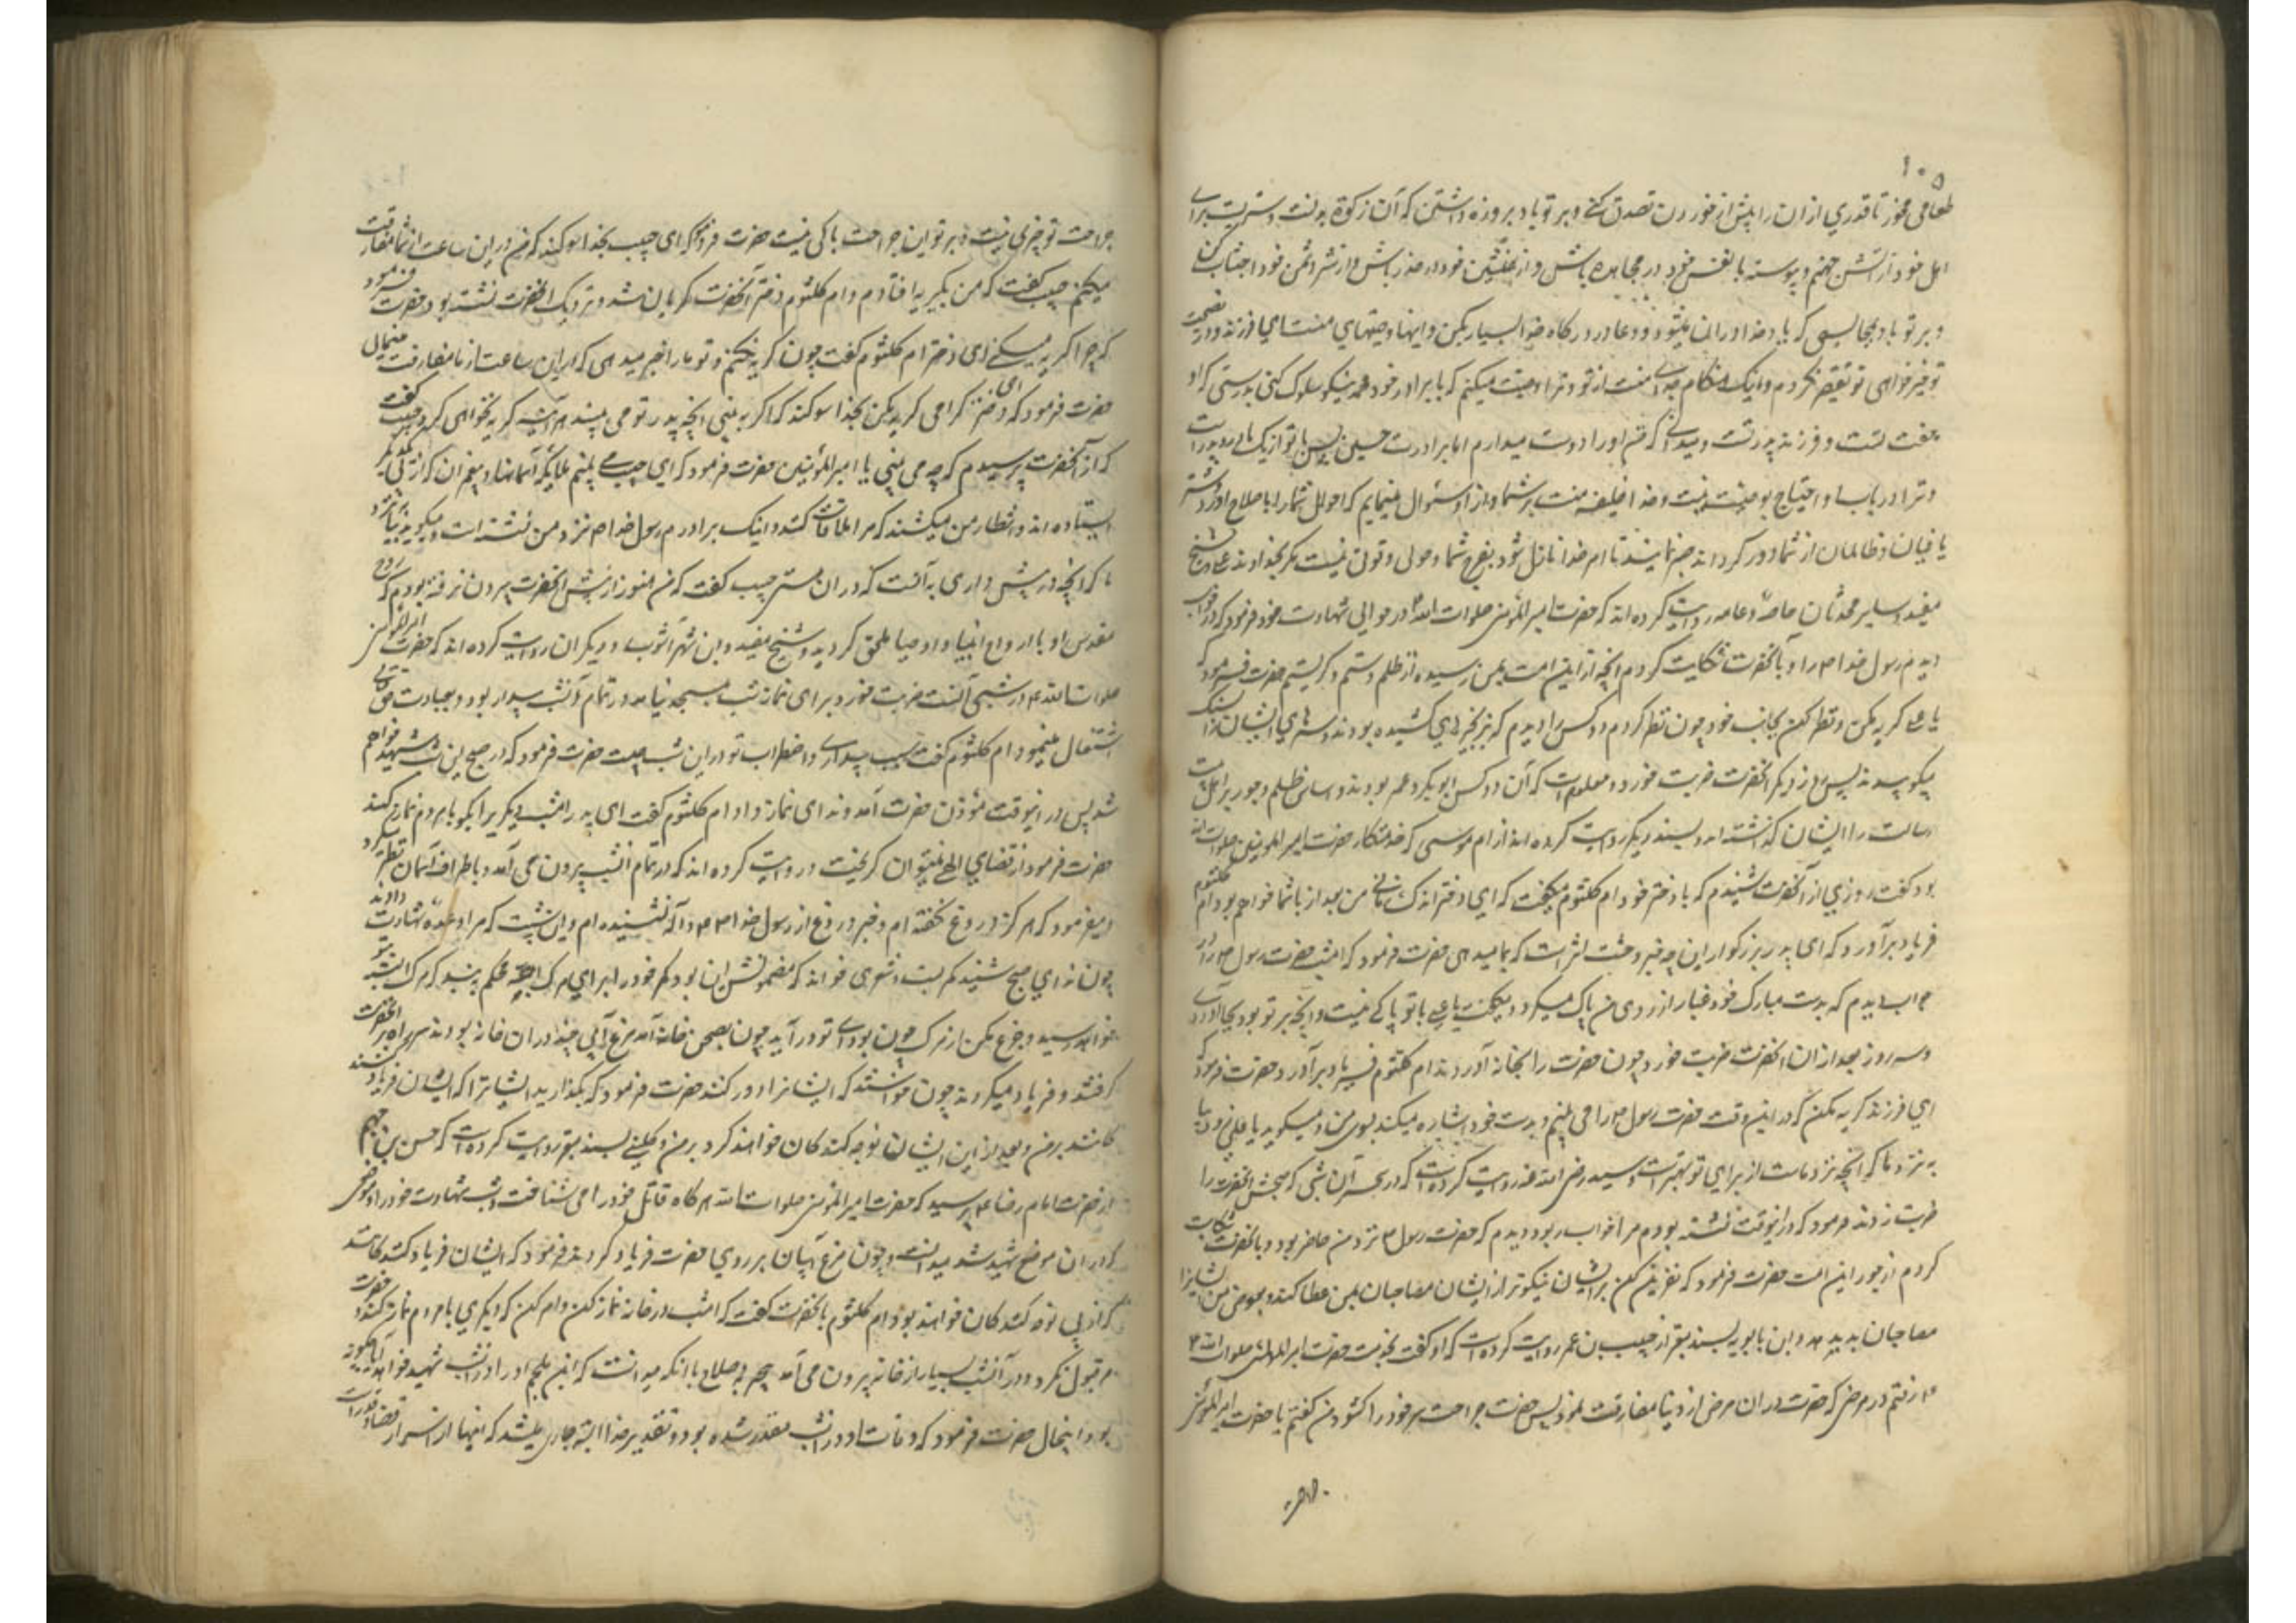 ۱۰۵
طعامی مخور تا قدری از ان را پیش از خوردن تصدق کنے و بر تو باد بروزه داشتن که آن زکوة بدنست و سپریست برای
اهل خود از آتش جهنم و پیوسته با نفس خود در مجاهده باش و از همنشین خود در حذر باش و از شر دشمن خود اجتناب کن
و بر تو باد بمجالسی که یاد خدا در انها میشود و دعا در درگاه خدا بسیار بکن و اینها وصیتهای منست ای فرزند و در نصیحت
و خیر خواهی تو تقصیر نکردم و اینک هنکام جدائی منست از تو و ترا وصیت میکنم که با برادر خود محمد نیکو سلوک کنی بدرستی که او
و فرزند پدر تست و میدانی که من او را دوست میدارم اما برادرت حسین پس با تو از یک مادر و پدر است
و ترا در باب او احتیاج بوصیت نیست و خدا خلیفه منست بر شما و از او سئوال مینمایم که احوال شما را باصلاح آورد و شر
یاغیان و ظالمان از شما دور کرداند صبر نمائید تا امر خدا نازل شود بفرج شما و حول و قوتی نیست مکر بخداوند علی و شیخ
مفید و سایر محدثان خاصه و عامه روایت کرده اند که حضرت امیر المؤمنین صلوات الله در حوالی شهادت خود فرمود که در خواب
دیدم رسول خدا ص را و بآنحضرت شکایت کردم آنچه از این امت بمن رسیده از ظلم و ستم و کریستم حضرت فرمود که
یا علی کریه مکن و نظر کن بجانب خود چون نظر کردم دو کس را دیدم که بزنجیرهای کشیده بودند و سرهای ایشان را بسنک
میکوبیدند پس روز دیکر آنحضرت ضربت خورد و معلومست که آن دو کس ابوبکر و عمر بودند و اساس ظلم و جور بر اهل بیت
رسالت را ایشان کذاشته اند و بسند دیکر روایت کرده اند از ام موسی که خدمتکار حضرت امیر المومنین صلوات الله
بود کفت روزی از آنحضرت شنیدم که با دختر خود ام کلثوم میکفت که ای دختر اندک زمانی من بعد از با شما خواهم بود ام کلثوم
فریاد برآورد که ای پدر بزرکوار این چه خبر وحشت اثر است که بما میدهی حضرت فرمود که امشب حضرت رسول ص را در
خواب دیدم که بدست مبارک خود غبار از روی من پاک میکرد و میکفت یا علی با تو باکے نیست و آنچه بر تو بود بجا آوردی
و سه روز بعد از ان آنحضرت ضربت خورد چون حضرت را بخانه آوردند ام کلثوم فریاد برآورد حضرت فرمود که
ای فرزند کریه مکن که در این وقت حضرت رسول ص را می بینم و بدست خود اشاره میکند بسوی من و میکوید یا علی زود بیا
به نزد ما که آنچه نزد ماست از برای تو بهتر است و سید رضی الله عنه روایت کرده است که در سحر آن شبی که صبحش آنحضرت را
ضربت زدند فرمود که در اینوقت نشسته بودم مرا خواب ربود و دیدم که حضرت رسول ص نزد من حاضر بود و بآنحضرت شکایت
کردم از جور این امت حضرت فرمود که نفرین کن بر ایشان نیکوتر از ایشان مصاحبان بمن عطا کند و بعوض من ایشانرا
مصاحبان بد بدهد و ابن بابویه بسند معتبر از حبیب بن عمر روایت کرده است که او کفت بخدمت حضرت امیر المؤمنین صلوات الله
رفتم در مرضی که حضرت در ان مرض از دنیا مفارقت نمود پس حضرت جراحت سر خود را کشود من کفتم یا حضرت امیر المؤمنین
جراحت تو چیزی نیست و بر تو این جراحت باکی نیست حضرت فرمود که ای حبیب بخدا سوکند که من در این ساعت از شما مفارقت
میکنم حبیب کفت که من بکریه افتادم و ام کلثوم دختر آنحضرت کریان شد و نزدیک آنحضرت نشسته بود حضرت فرمود
که چرا کریه میکنے ای دختر ام کلثوم کفت چون کریه نکنم و تو ما را خبر میدهی که در این ساعت از ما مفارقت مینمائی
حضرت فرمود که ای دختر کرامی کریه مکن بخدا سوکند که اکر به بینی آنچه پدر تو می بیند هرآینه کریه نخواهی کرد حبیب کفت
که از آنحضرت پرسیدم که چه می بینی یا امیر المؤمنین حضرت فرمود که ای حبیب می بینم ملایکه آسمانها و پیغمبران که از پی یکدیکر
ایستاده اند و انتظار من میکشند که مرا ملاقات کنند و اینک برادرم رسول خدا ص نزد من نشسته است و میکوید بیا نزد
ما که آنچه در پیش داری به از آنست که در ان هستی حبیب کفت که من هنوز از پیش آنحضرت بیرون نرفته بودم که روح
مقدس او با ارواح انبیا و اوصیا ملحق کردید و شیخ مفید و ابن شهر آشوب و دیکران روایت کرده اند که حضرت امیر المؤمنین
صلوات الله در شبی که آنست ضربت خورد برای نماز شب بمسجد نیامد و در تمام آنشب بیدار بود و بعبادت حق تعالی
اشتغال مینمود ام کلثوم کفت سبب بیداری و اضطراب تو در این شب چیست حضرت فرمود که در صبح این شب شهید خواهم
شد پس در اینوقت مؤذن حضرت آمد و ندای نماز داد ام کلثوم کفت ای پدر امشب دیکری را بکو با مردم نماز کند
حضرت فرمود از قضای الهی نمیتوان کریخت و روایت کرده اند که در تمام آنشب بیرون می آمد و باطراف آسمان نظر میکرد
و میفرمود که هرکز دروغ نکفته ام و خبر دروغ از رسول خدا ص و آله نشنیده ام و این شبیست که مرا وعده شهادت داده اند
چون ندای صبح شنید کمر بست و شعری خواند که مضمونش این بود کمر خود را برای مرک محکم به بند که مرک البته بتو
خواهد رسید و جزع مکن از مرک چون بوادی تو درآید چون بصحن خانه آمد مرغ آبی چند در ان خانه بودند سر راه بر آنحضرت
کرفتند و فریاد میکردند چون خواستند که ایشانرا دور کنند حضرت فرمود که بکذارید ایشانرا که ایشان فریاد کنند
کانند بر من و بعد از این ایشان نوحه کنند کان خواهند کرد بر من و کلینے بسند معتبر روایت کرده است که حسن بن جهم
از حضرت امام رضا ع پرسید که حضرت امیر المؤمنین صلوات الله هرکاه قاتل خود را می شناخت و شب شهادت خود را و موضعی
که در ان موضع شهید شد میدانست و چون مرغ آبیان بر روی حضرت فریاد کردند فرمود که ایشان فریاد کنند کانند
که از پی نوحه کنند کان خواهند بود و ام کلثوم بآنحضرت کفت که امشب در خانه نماز کن و امر کن که دیکری با مردم نماز کند و حضرت
قبول نکرد و در آنشب بسیار از خانه بیرون می آمد بی حربه و صلاح با آنکه میدانست که ابن ملجم او را در انشب شهید خواهد آیا چکونه
بود اینحال حضرت فرمود که وفات او در انشب مقدر شده بود و تقدیر خدا البته جاری میشد که اینها از اسرار قضا و قدر است